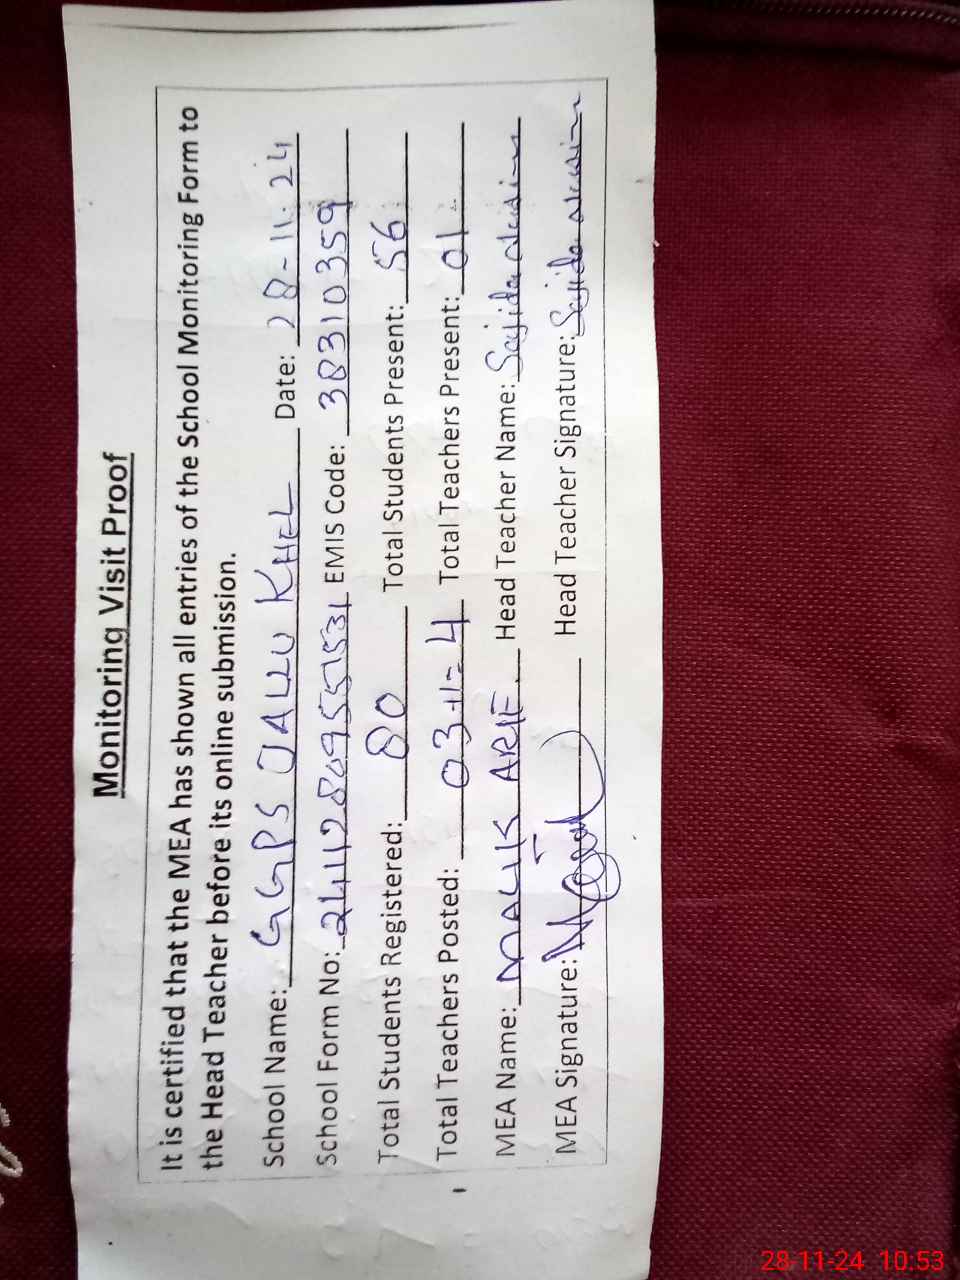 Monitoring Visit Proof
It is certified that the MEA has shown all entries of the School Monitoring Form to
the Head Teacher before its online submission.
School Name: GGPS JALLU KHEL Date: 28-11-24
School Form No: EMIS Code: 38310359
Total Students Registered: 80 Total Students Present: 56
Total Teachers Posted: 03+1=4 Total Teachers Present: 01
MEA Name: MALIK ARIF Head Teacher Name: Sajida
MEA Signature: Head Teacher Signature: Sajida
28-11-24 10:53